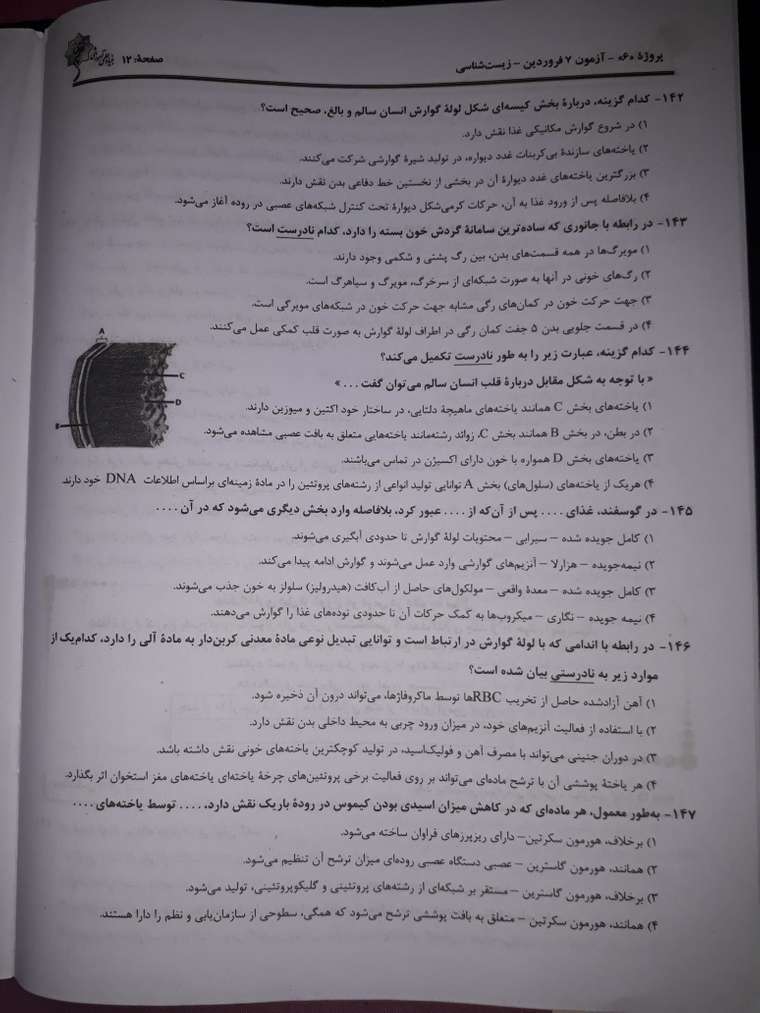 پروژهٔ «۶» - آزمون ۷ فروردین - زیست‌شناسی
صفحهٔ: ۱۲
۱۴۲- کدام گزینه، دربارهٔ بخش کیسه‌ای شکل لولهٔ گوارش انسان سالم و بالغ، صحیح است؟
۱) در شروع گوارش مکانیکی غذا نقش دارد.
۲) یاخته‌های سازندهٔ بی‌کربنات غدد دیواره، در تولید شیرهٔ گوارشی شرکت می‌کنند.
۳) بزرگترین یاخته‌های غدد دیوارهٔ آن در بخشی از نخستین خط دفاعی بدن نقش دارند.
۴) بلافاصله پس از ورود غذا به آن، حرکات کرمی‌شکل دیوارهٔ تحت کنترل شبکه‌های عصبی در روده آغاز می‌شود.
۱۴۳- در رابطه با جانوری که ساده‌ترین سامانهٔ گردش خون بسته را دارد، کدام نادرست است؟
۱) مویرگ‌ها در همه قسمت‌های بدن، بین رگ پشتی و شکمی وجود دارند.
۲) رگ‌های خونی در آنها به صورت شبکه‌ای از سرخرگ، مویرگ و سیاهرگ است.
۳) جهت حرکت خون در کمان‌های رگی مشابه جهت حرکت خون در شبکه‌های مویرگی است.
۴) در قسمت جلویی بدن ۵ جفت کمان رگی در اطراف لولهٔ گوارش به صورت قلب کمکی عمل می‌کنند.
۱۴۴- کدام گزینه، عبارت زیر را به طور نادرست تکمیل می‌کند؟
« با توجه به شکل مقابل دربارهٔ قلب انسان سالم می‌توان گفت . . . »
A
C
D
B
۱) یاخته‌های بخش C همانند یاخته‌های ماهیچهٔ دلتایی، در ساختار خود اکتین و میوزین دارند.
۲) در بطن، در بخش B همانند بخش C، زوائد رشته‌مانند یاخته‌هایی متعلق به بافت عصبی مشاهده می‌شود.
۳) یاخته‌های بخش D همواره با خون دارای اکسیژن در تماس می‌باشند.
۴) هریک از یاخته‌های (سلول‌های) بخش A توانایی تولید انواعی از رشته‌های پروتئین را در مادهٔ زمینه‌ای براساس اطلاعات DNA خود دارند.
۱۴۵- در گوسفند، غذای . . . . پس از آن‌که از . . . . عبور کرد، بلافاصله وارد بخش دیگری می‌شود که در آن . . . .
۱) کامل جویده شده – سیرابی – محتویات لولهٔ گوارش تا حدودی آبگیری می‌شوند.
۲) نیمه‌جویده – هزارلا – آنزیم‌های گوارشی وارد عمل می‌شوند و گوارش ادامه پیدا می‌کند.
۳) کامل جویده شده – معدهٔ واقعی – مولکول‌های حاصل از آب‌کافت (هیدرولیز) سلولز به خون جذب می‌شوند.
۴) نیمه جویده – نگاری – میکروب‌ها به کمک حرکات آن تا حدودی توده‌های غذا را گوارش می‌دهند.
۱۴۶- در رابطه با اندامی که با لولهٔ گوارش در ارتباط است و توانایی تبدیل نوعی مادهٔ معدنی کربن‌دار به مادهٔ آلی را دارد، کدام‌یک از
موارد زیر به نادرستی بیان شده است؟
۱) آهن آزادشده حاصل از تخریب RBCها توسط ماکروفاژها، می‌تواند درون آن ذخیره شود.
۲) با استفاده از فعالیت آنزیم‌های خود، در میزان ورود چربی به محیط داخلی بدن نقش دارد.
۳) در دوران جنینی می‌تواند با مصرف آهن و فولیک‌اسید، در تولید کوچکترین یاخته‌های خونی نقش داشته باشد.
۴) هر یاختهٔ پوششی آن با ترشح ماده‌ای می‌تواند بر روی فعالیت برخی پروتئین‌های چرخهٔ یاخته‌ای یاخته‌های مغز استخوان اثر بگذارد.
۱۴۷- به‌طور معمول، هر ماده‌ای که در کاهش میزان اسیدی بودن کیموس در رودهٔ باریک نقش دارد، . . . . توسط یاخته‌های . . . .
۱) برخلاف، هورمون سکرتین– دارای ریزپرزهای فراوان ساخته می‌شود.
۲) همانند، هورمون گاسترین – عصبی دستگاه عصبی روده‌ای میزان ترشح آن تنظیم می‌شود.
۳) برخلاف، هورمون گاسترین – مستقر بر شبکه‌ای از رشته‌های پروتئینی و گلیکوپروتئینی، تولید می‌شود.
۴) همانند، هورمون سکرتین – متعلق به بافت پوششی ترشح می‌شود که همگی، سطوحی از سازمان‌یابی و نظم را دارا هستند.